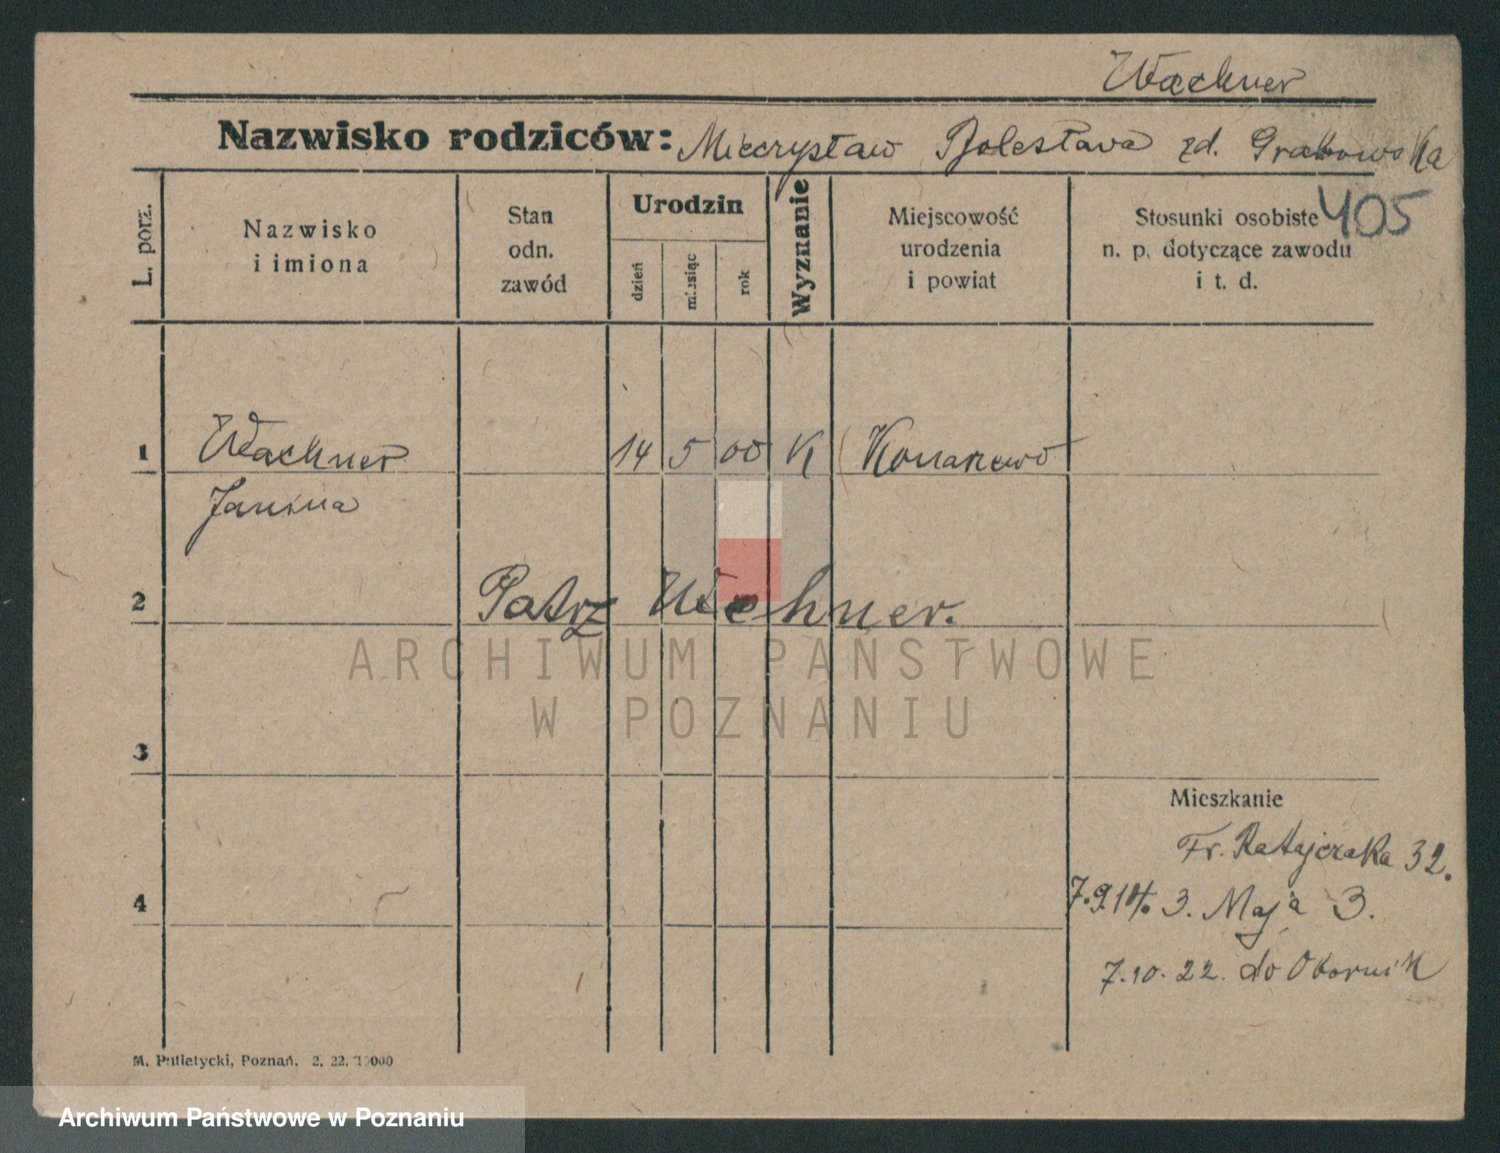 Wachner
Nazwisko rodziców: Mieczysław Bolesława zd. Grabowska
405
L. porz.
Nazwisko
i imiona
Stan
odn.
zawód
Urodzin
dzień
miesiąc
rok
Wyznanie
Miejscowość
urodzenia
i powiat
Stosunki osobiste
n. p. dotyczące zawodu
i t. d.
1 Wachner 14 5 00 K Konarzewo
Janina
2 Patrz Wehner.
ARCHIWUM PAŃSTWOWE
W POZNANIU
3
Mieszkanie
Fr. Ratajczaka 32.
4
3. Maja 3.
7.10.22. do Obornik
M. Putiatycki, Poznań. 2. 22.
Archiwum Państwowe w Poznaniu